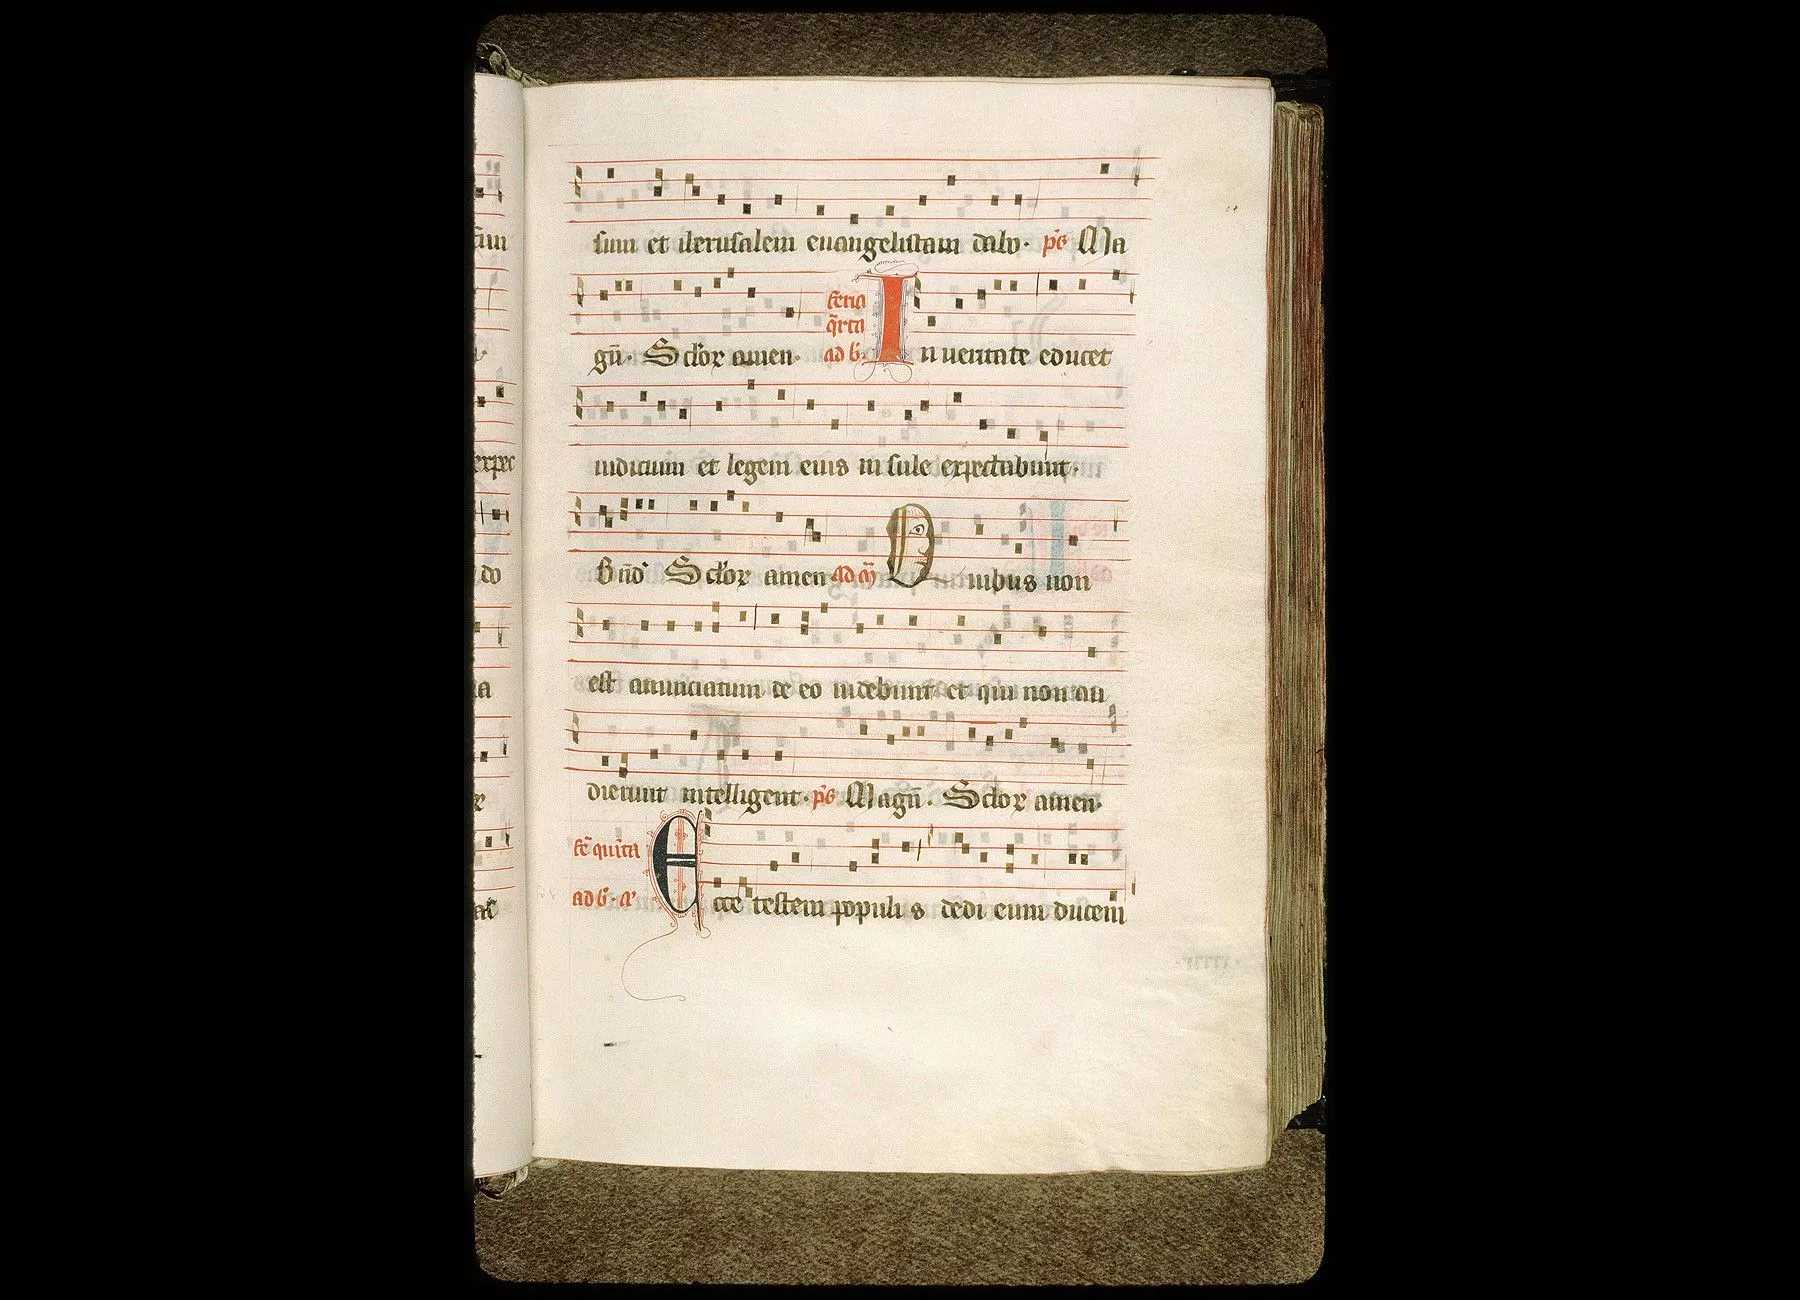 sum et iherusalem euangelistam dabo. ps Ma
gn̄. Sclōr amen. feria q̄rta ad b. In ueritate educet
iudicium et legem eius insule expectabunt.
Bn̄d Sclōr amen Ad m̄ Quibus non
est annunciatum de eo uidebunt et qui non au
dierunt intelligent. ps Magn̄. Sclor amen.
fē quīta ad b. a Ecce testem populis dedi eum ducem